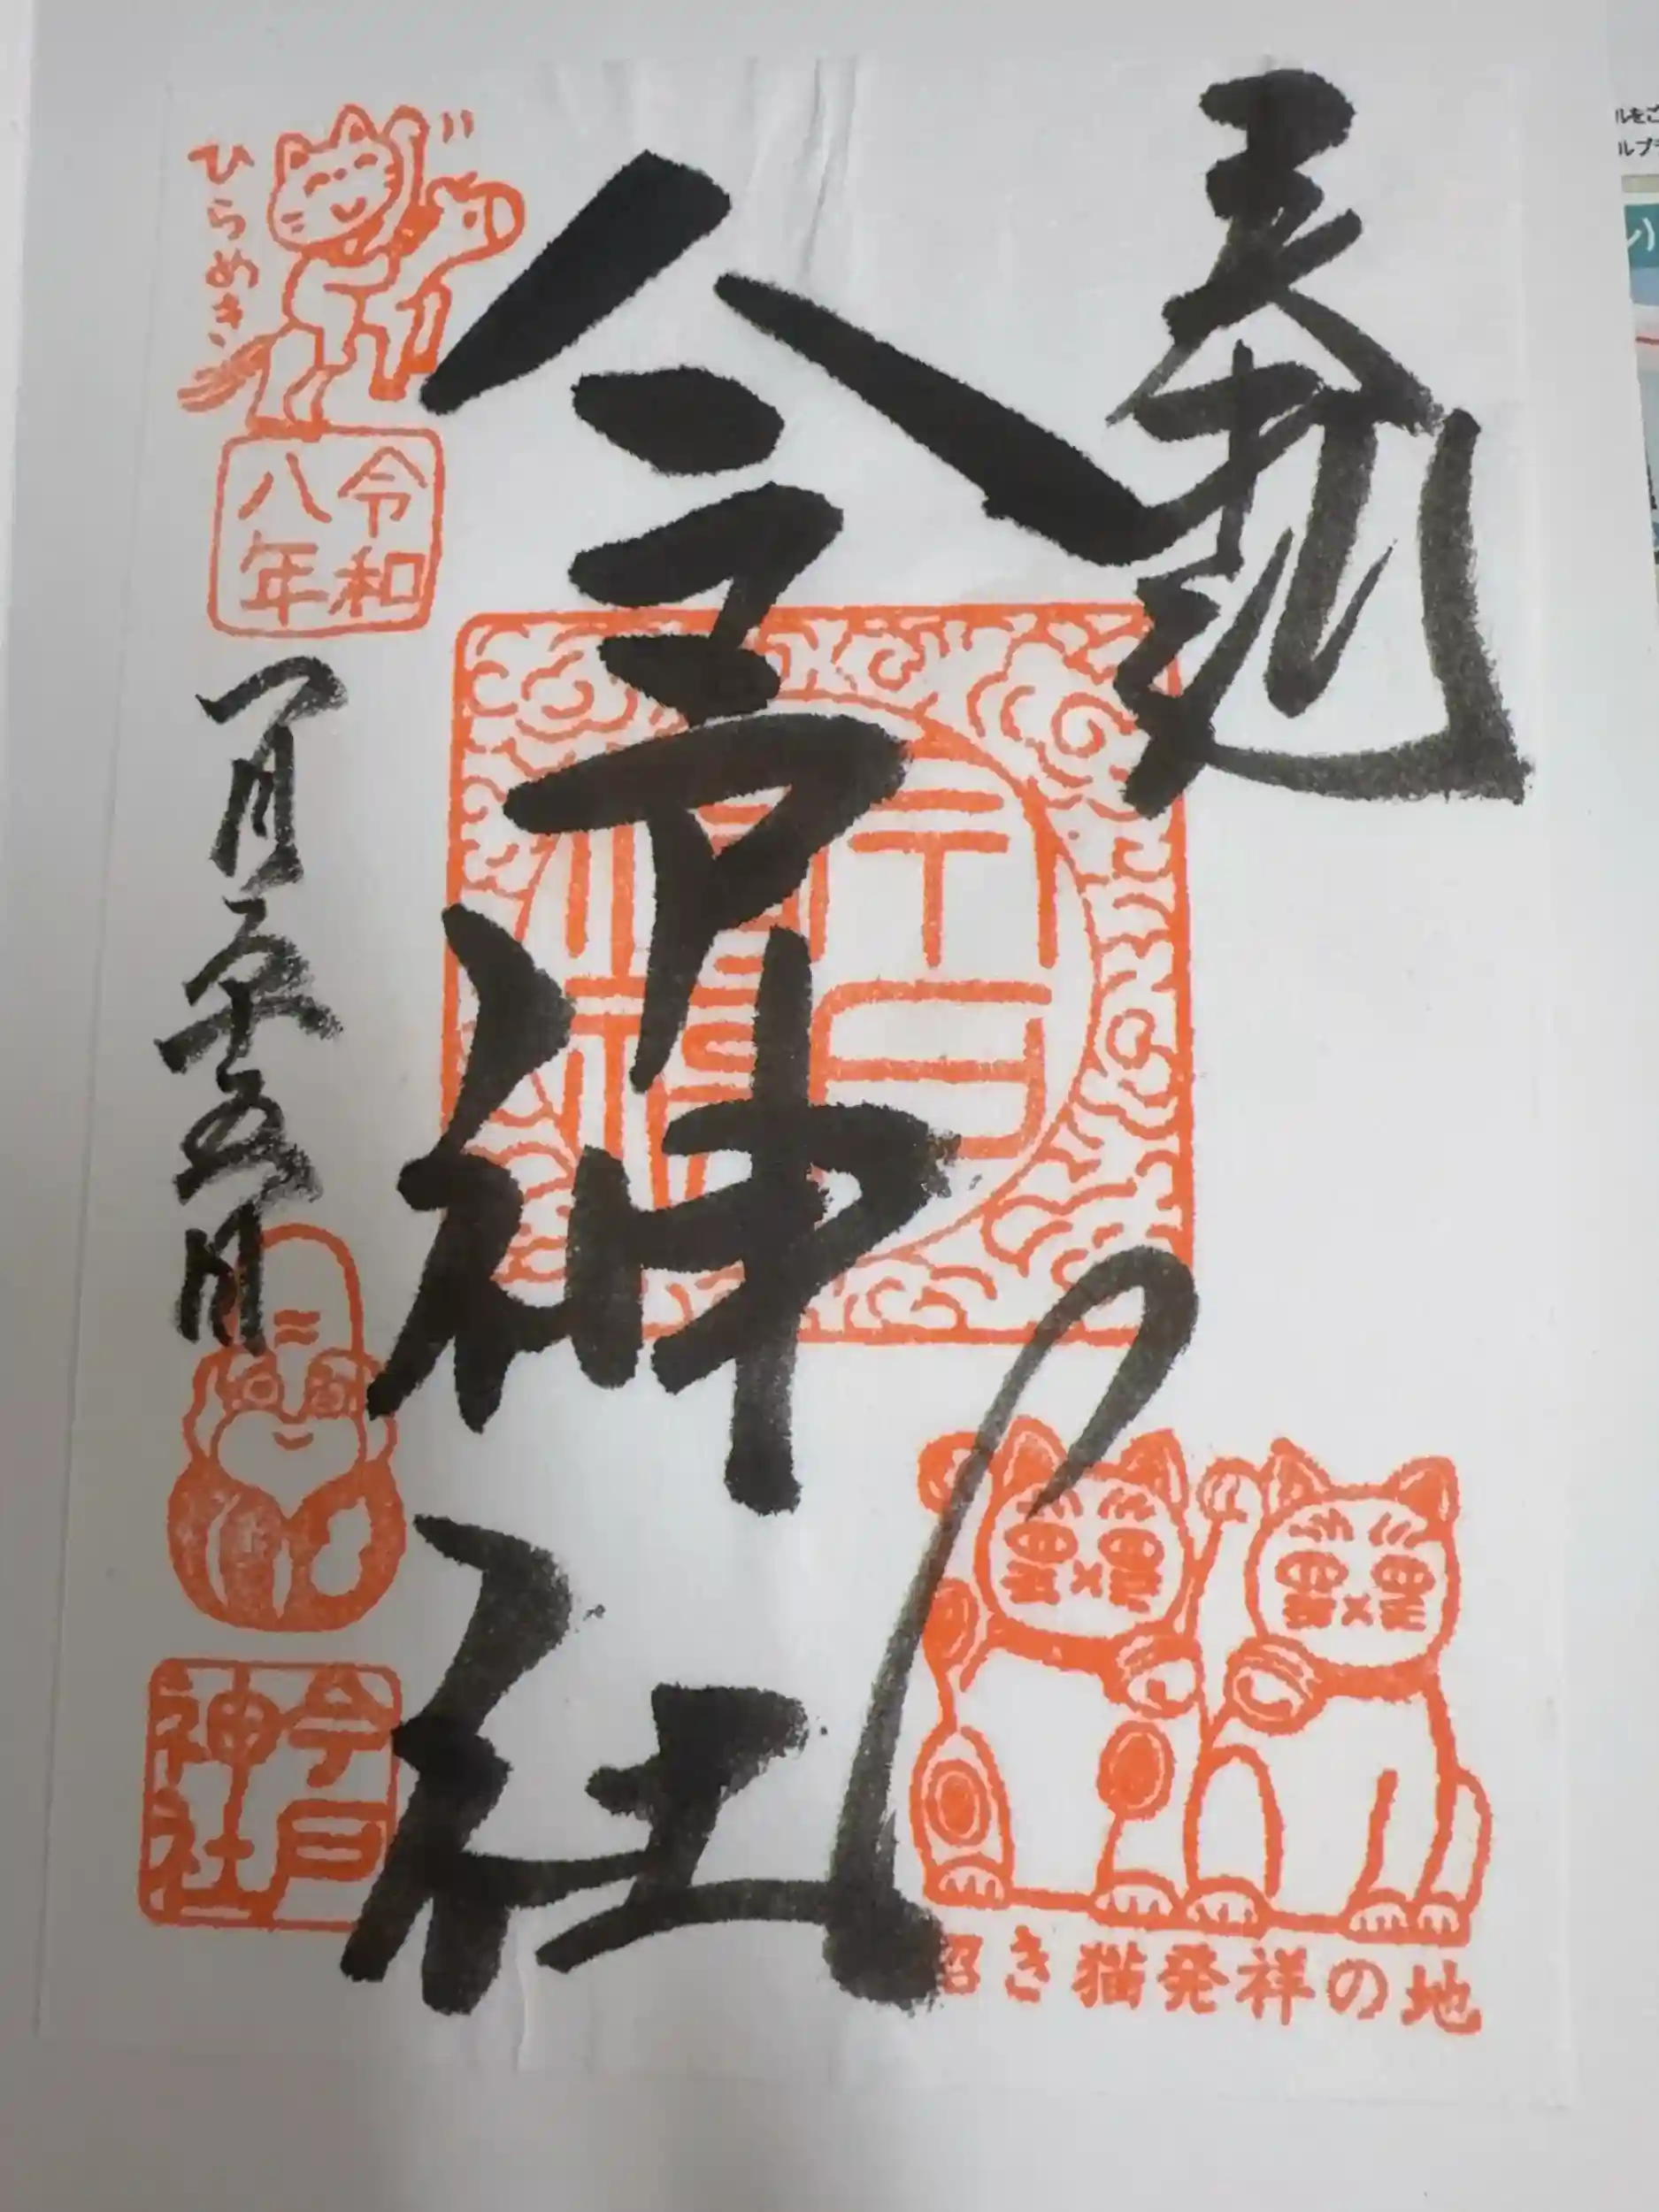 奉拝
今戸神社
ひらめき
令和
八年
一月二十五日
今戸
神社
招き猫発祥の地